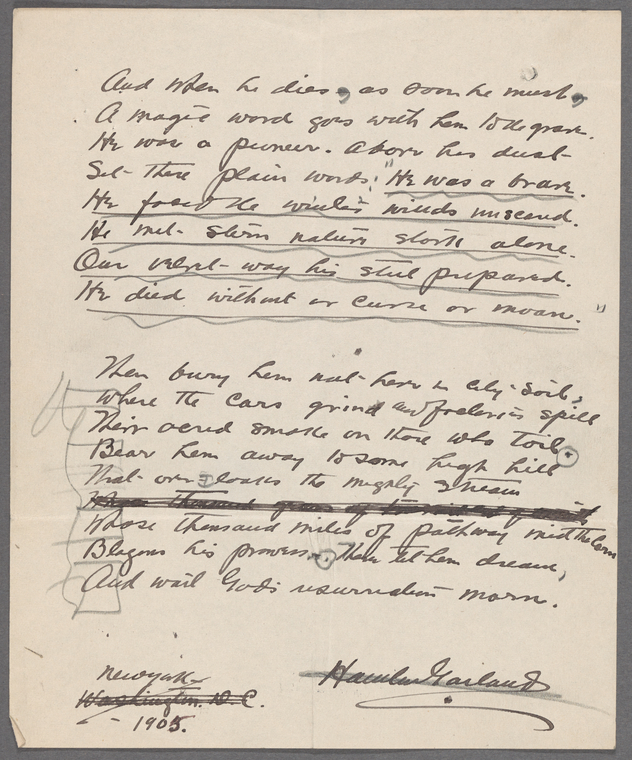 And when he dies, as soon he must,
A magic word goes with him to the grave.
He was a pioneer. Above his dust
Set these plain words: "He was a brave.
He faced the winter's winds unscared.
He met stern nature stark alone.
Our velvet way his steel prepared.
He died without a curse or moan."
Then bury him not here in city soil,
Where the cars grind and factories spill
Their acrid smoke on those who toil.
Bear him away to some high hill
That overlooks the mighty stream
Whose thousand miles of pathway mid the corn
Blazons his prowess. There let him dream,
And wait God's resurrection morn.
New York
Washington. D.C.
1905.
Hamlin Garland